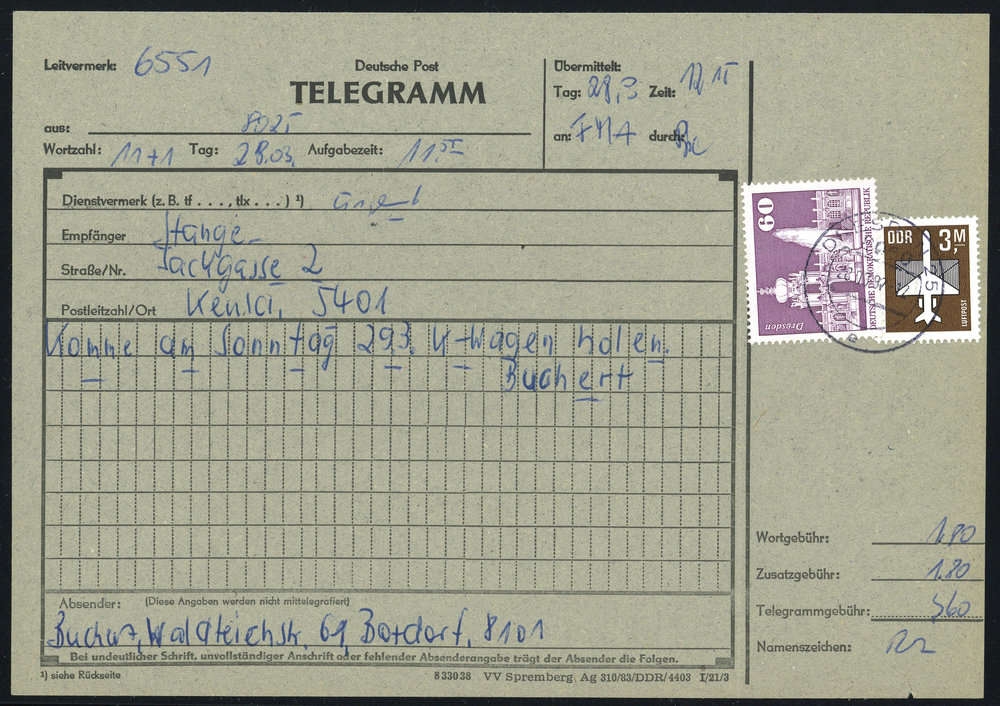 Leitvermerk: 6551
Deutsche Post
TELEGRAMM
aus: 8025
Wortzahl: 11+1 Tag: 28.03. Aufgabezeit: 11
Übermittelt:
Tag: 28.3 Zeit: 12 15
an: durch:
Dienstvermerk (z. B. tf . . . ., tlx . . . . ) ¹)
Empfänger Stange
Straße/Nr. Sackgasse 2
Postleitzahl/Ort 5401
Komme am Sonntag 29.3. K-Wagen holen.
Buchert
Absender: (Diese Angaben werden nicht mittelegrafiert)
Buchert, Waldteichstr. 61, 8101
Bei undeutlicher Schrift, unvollständiger Anschrift oder fehlender Absenderangabe trägt der Absender die Folgen.
¹) siehe Rückseite
8 330 38 VV Spremberg, Ag 310/83/DDR/4403 I/21/3
60
Dresden
DEUTSCHE DEMOKRATISCHE REPUBLIK
DDR 3,M
LUFTPOST
Wortgebühr: 1.80
Zusatzgebühr: 1.80
Telegrammgebühr: 3.60
Namenszeichen: